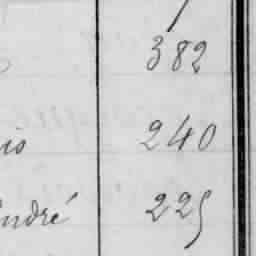 382
is 240
indré 225